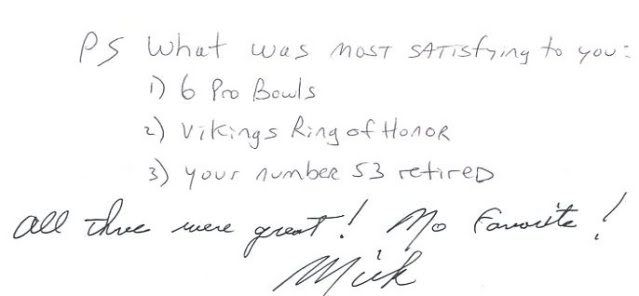 PS What was most satisfying to you:
1) 6 Pro Bowls
2) Vikings Ring of Honor
3) your number 53 retired
All three were great! No Favorite!
Mick